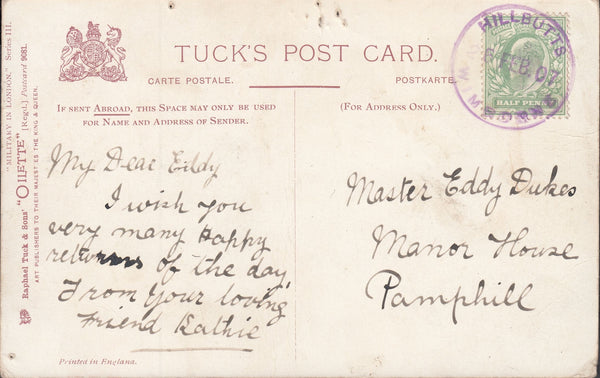 TUCK'S POST CARD.
CARTE POSTALE.
POSTKARTE.
IF SENT ABROAD, THIS SPACE MAY ONLY BE USED
FOR NAME AND ADDRESS OF SENDER.
(FOR ADDRESS ONLY.)
My Dear Eddy
I wish you
very many Happy
returns of the day,
From your loving
friend Kathie
Printed in England.
Master Eddy Dukes
Manor House
Pamphill
HILLBUTTS
FEB. 07
HALF PENNY
"MILITARY IN LONDON." Series III.
Raphael Tuck & Sons' "OILETTE" [Regd.] Postcard 9081.
ART PUBLISHERS TO THEIR MAJESTIES THE KING & QUEEN.